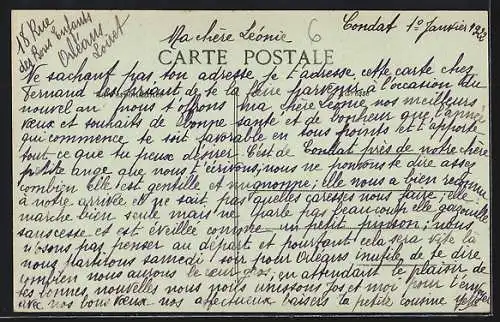 18 Rue
des Bons Enfants
Orléans
Loiret
Condat 1º Janvier 1922
Ma chère Léonie
6
CARTE POSTALE
Ne sachant pas ton adresse je t'adresse cette carte chez
Fernand les priant de te la faire parvenir à l'occasion du
nouvel an nous t'offrons ma chère Léonie nos meilleurs
vœux et souhaits de bonne santé et de bonheur que l'année
qui commence te soit favorable en tous points et t'apporte
tout ce que tu peux désirer. C'est de Condat près de notre chère
petite ange que nous t'écrivons; nous ne pouvons te dire assez
combien elle est gentille et mignonne; elle nous a bien reconnu
à notre arrivée et ne sait pas quelles caresses nous faire; elle
marche bien seule mais ne parle pas beaucoup elle gazouille
sans cesse et est éveillée comme un petit pinson; nous
n'osons pas penser au départ et pourtant cela sera vite là
nous partirons samedi soir pour Orléans inutile de te dire
combien nous aurons le cœur gros; en attendant le plaisir de
tes bonnes nouvelles nous nous unissons Jos et moi pour t'envoyer
avec nos bons vœux nos affectueux baisers la petite cousine